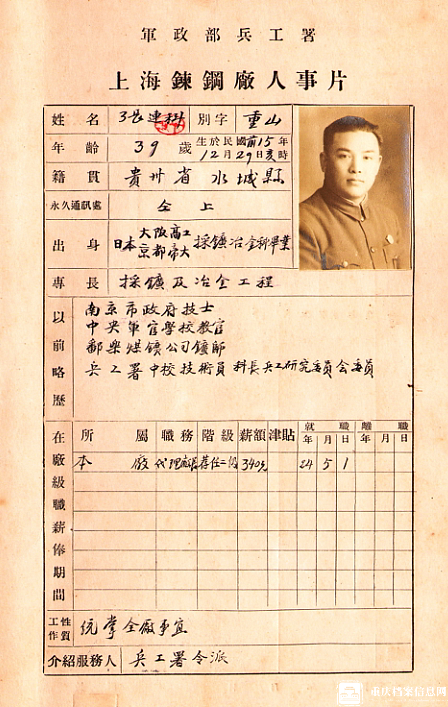 軍政部兵工署
上海鍊鋼廠人事片
姓名 張連科 別字 重山
年齡 39歲 生於民國前15年12月29日亥時
籍貫 貴州省水城縣
永久通訊處 仝上
出身 日本大阪高工京都帝大採鑛冶金科畢業
專長 採鑛及冶金工程
以前略歷
南京市政府技士
中央軍官學校教官
鄱樂煤鑛公司鑛師
兵工署中校技術員 科長兵工研究委員会委員
在廠級職薪俸期間
所屬 職務 階級 薪額 津貼 就職年月日 離職年月日
本廠 代理廠長 荐任二級 340元 24 5 1
工作性質 統掌全廠事宜
介紹服務人 兵工署令派
重庆档案信息网